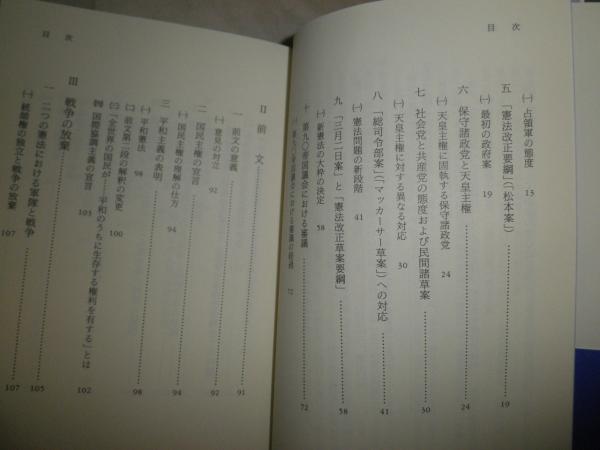 目次
㈠ 占領軍の態度 13
五 「憲法改正要綱」(「松本案」) 19
㈠ 最初の政府案 19
六 保守諸政党と天皇主権 24
㈠ 天皇主権に固執する保守諸政党 24
七 社会党と共産党の態度および民間諸草案 30
㈠ 天皇主権に対する異なる対応 30
八 「総司令部案」(「マッカーサー草案」)への対応 41
㈠ 憲法問題の新段階 41
九 「三月二日案」と「憲法改正草案要綱」 58
㈠ 新憲法の大枠の決定 58
十 第九〇帝国議会における審議 72
㈠ 第九〇帝国議会における審議の経過 72
目次
II 前文 91
一 前文の意義 91
㈠ 意見の対立 92
二 国民主権の宣言 92
㈠ 国民主権の理解の仕方 94
三 平和主義の表明 94
㈠ 平和憲法 98
㈡ 前文第二段の解釈の変更 98
㈢ 「全世界の国民が……平和のうちに生存する権利を有する」とは 100
㈣ 国際協調主義の宣言 103
III 戦争の放棄 102
一 二つの憲法における軍隊と戦争 105
㈠ 統帥権の独立と戦争の放棄 107
107